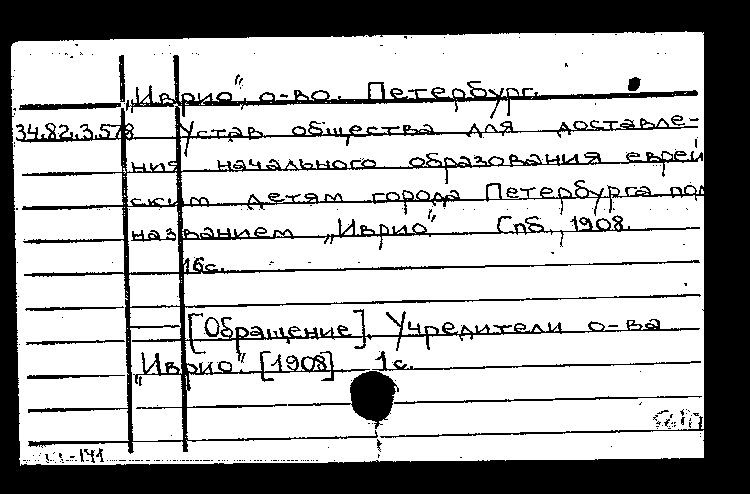 „Иврио“, о-во. Петербург.
34.82.3.578 Устав общества для доставле-
ния начального образования еврей
ским детям города Петербурга под
названием „Иврио“ Спб., 1908.
16с.
[Обращение]. Учредители о-ва
„Иврио“. [1908] 1с.